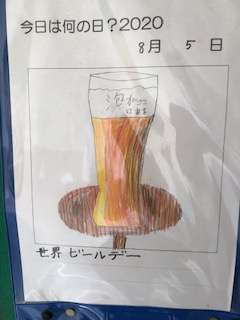 今日は何の日?2020
8月 5日
泡
世界ビールデー